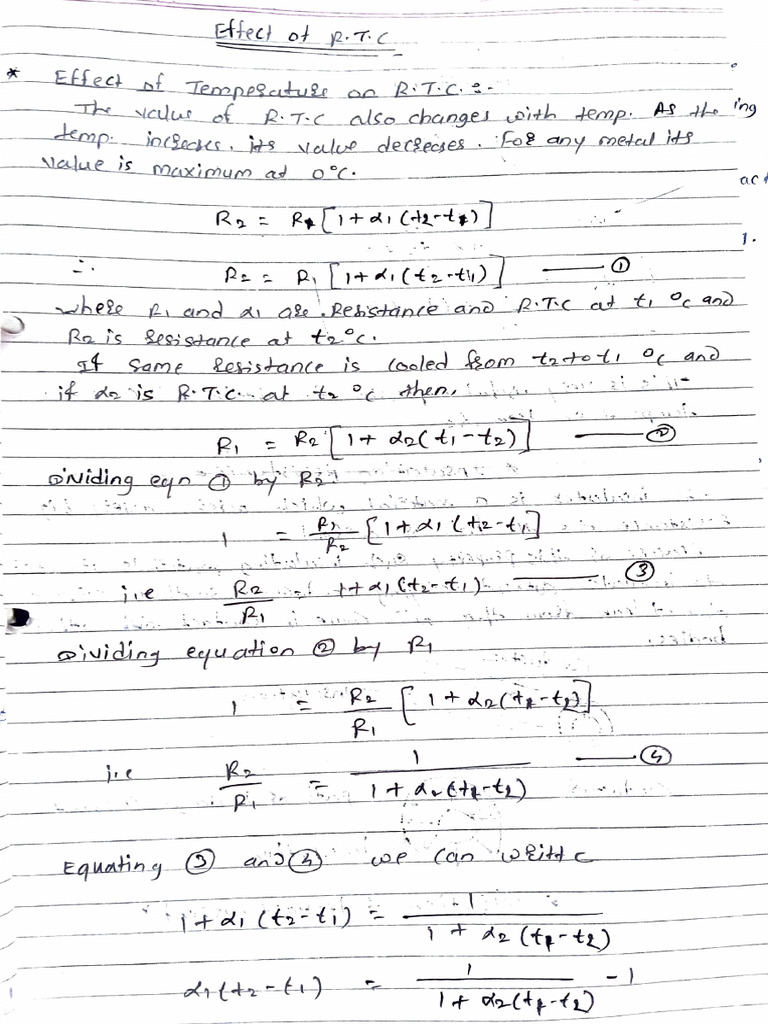 Effect of R.T.C
* Effect of Temperature on R.T.C. :-
The value of R.T.C also changes with temp. As the
temp. increases, its value decreases. For any metal its
value is maximum at 0°C.
ing
act
1.
R2 = R1 [1 + α1 (t2 - t1)]
∴ R2 = R1 [1 + α1 (t2 - t1)] —— ①
where R1 and α1 are Resistance and R.T.C at t1 °C and
R2 is resistance at t2°C.
If same resistance is cooled from t2 to t1 °C and
if α2 is R.T.C. at t2 °C then,
R1 = R2 [1 + α2 (t1 - t2)] —— ②
Dividing eqn ① by R2
1 = R1/R2 [1 + α1 (t2 - t1)]
i.e R2/R1 = 1 + α1 (t2 - t1) —— ③
Dividing equation ② by R1
1 = R2/R1 [1 + α2 (t1 - t2)]
i.e R2/R1 = 1/1 + α2 (t1 - t2) —— ④
Equating ③ and ④ we can write
1 + α1 (t2 - t1) = 1/1 + α2 (t1 - t2)
α1 (t2 - t1) = 1/1 + α2 (t1 - t2) - 1